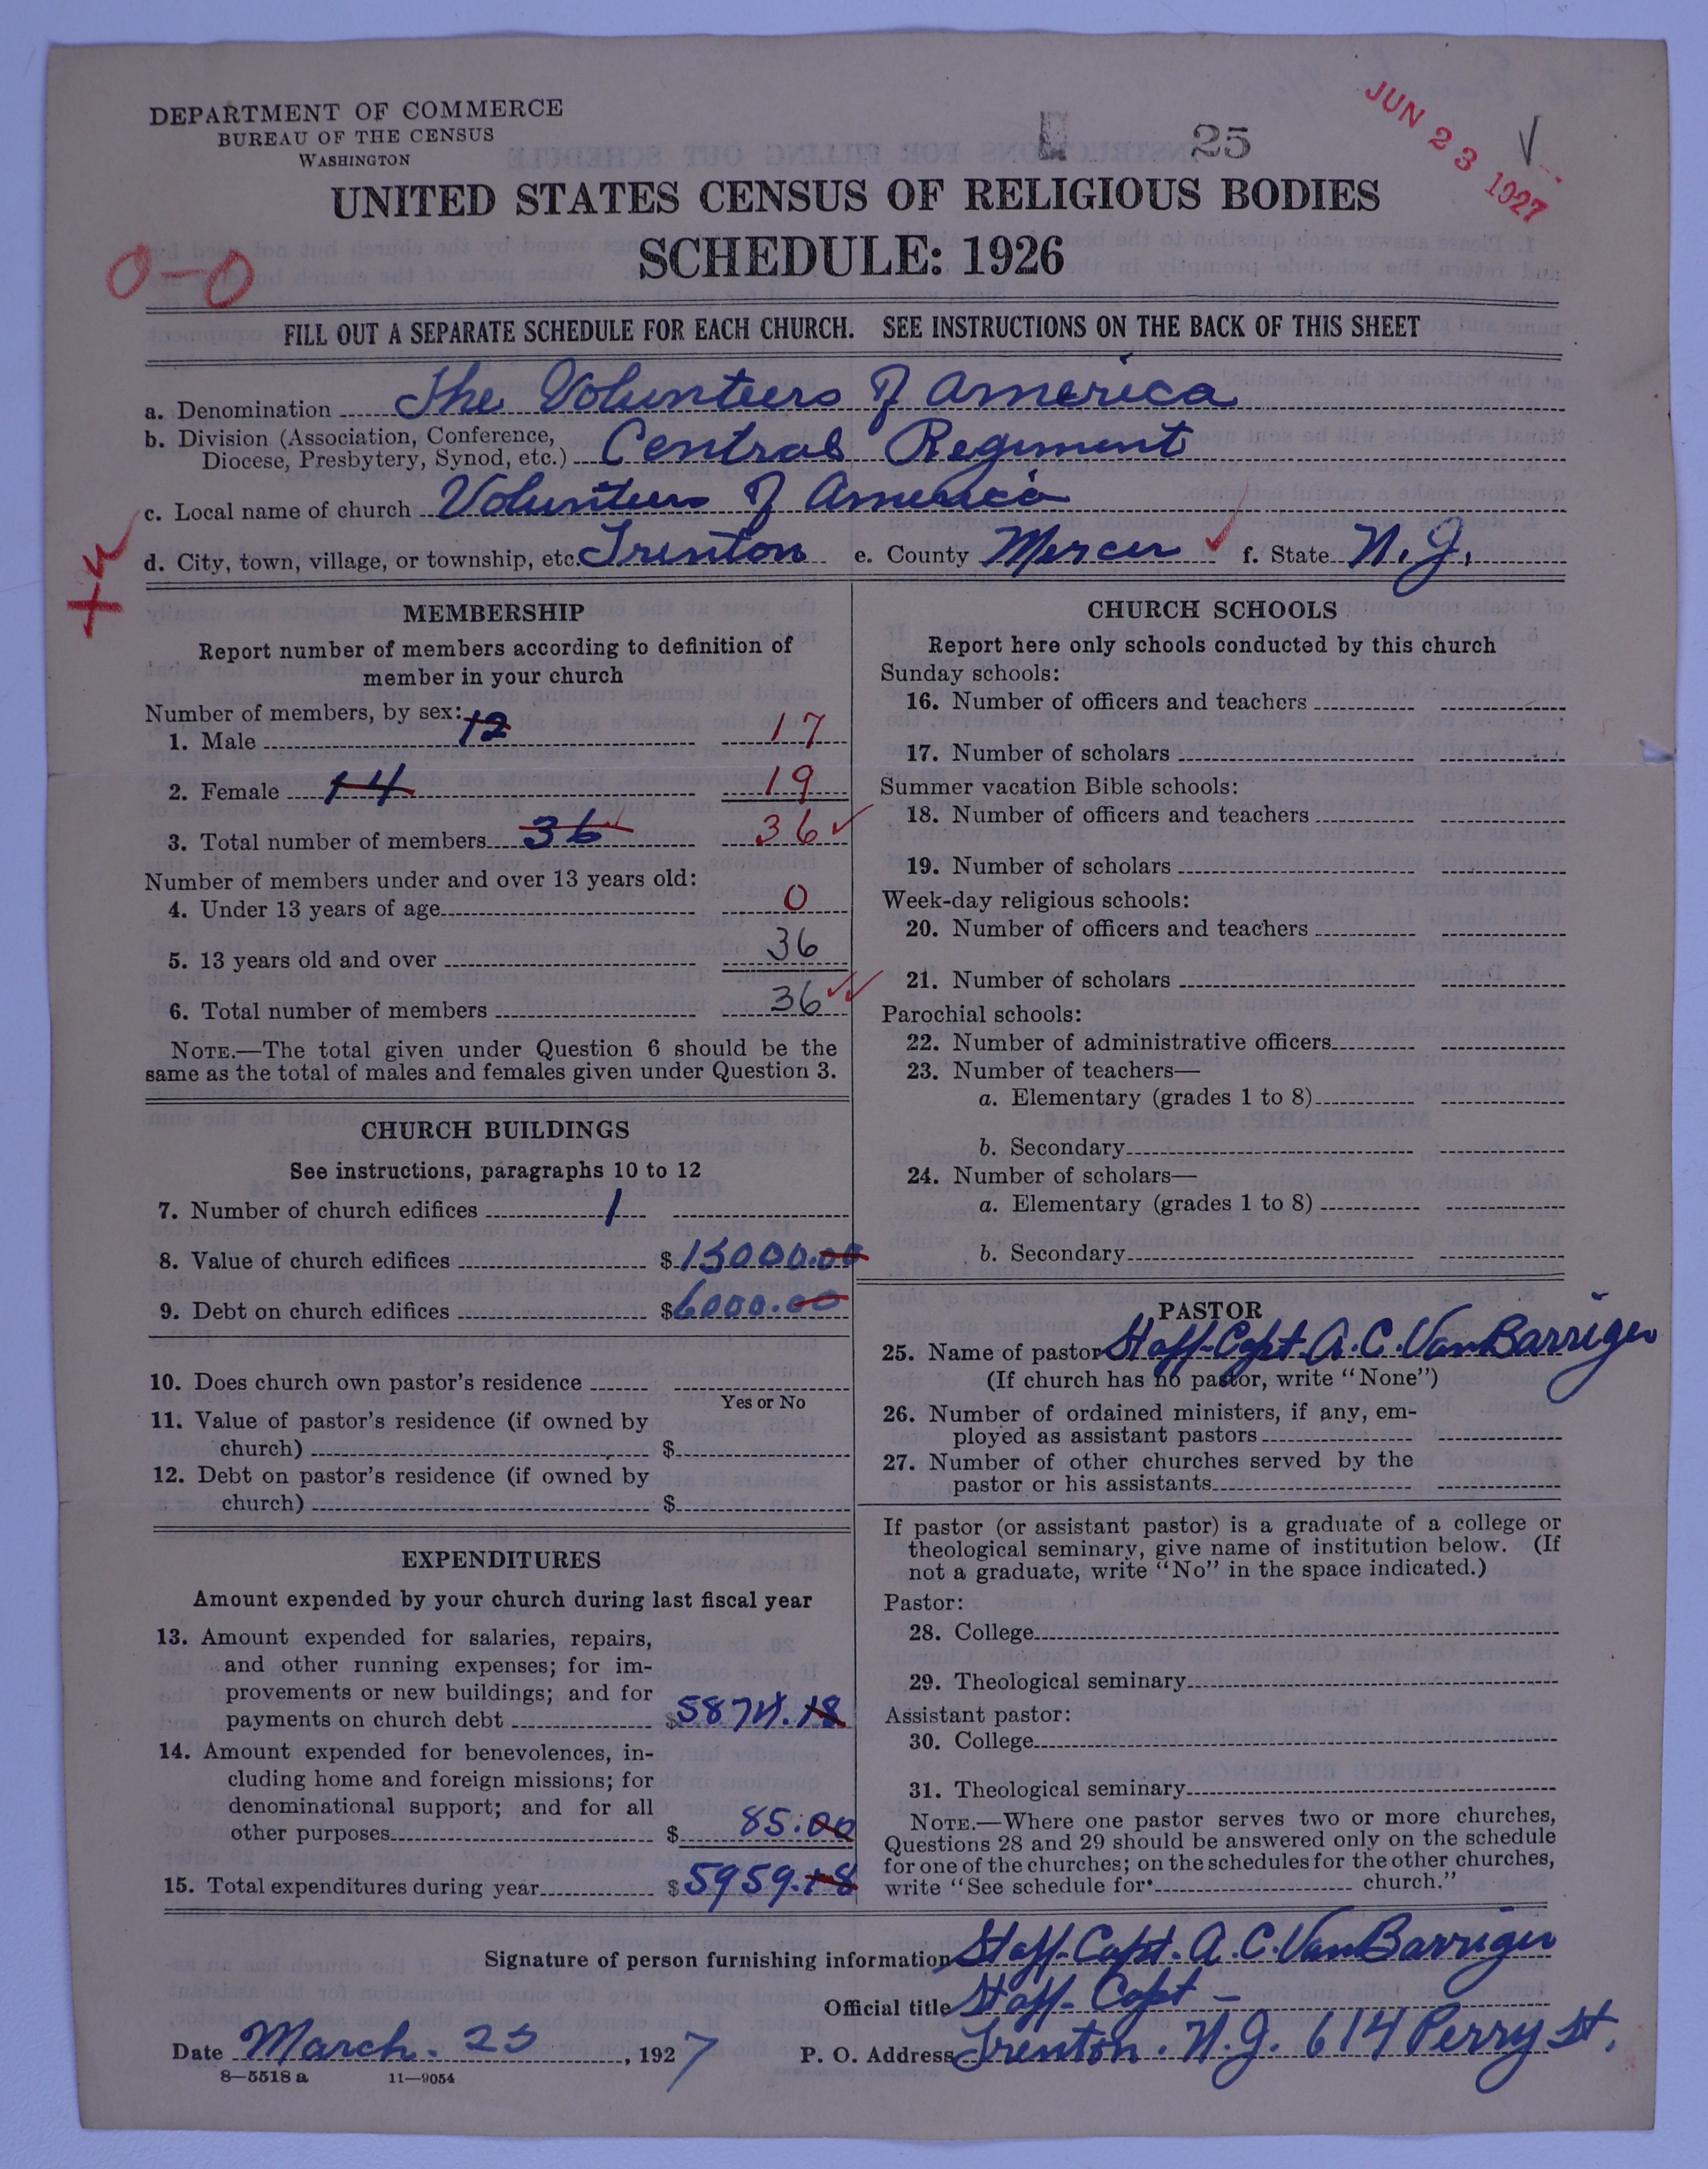 DEPARTMENT OF COMMERCE
BUREAU OF THE CENSUS
WASHINGTON
25
JUN 23 1927
UNITED STATES CENSUS OF RELIGIOUS BODIES
SCHEDULE: 1926
0-0
FILL OUT A SEPARATE SCHEDULE FOR EACH CHURCH. SEE INSTRUCTIONS ON THE BACK OF THIS SHEET
a. Denomination The Volunteers of America
b. Division (Association, Conference,
Diocese, Presbytery, Synod, etc.) Central Regiment
c. Local name of church Volunteers of America
d. City, town, village, or township, etc. Trenton e. County Mercer f. State N.J.
MEMBERSHIP
Report number of members according to definition of
member in your church
Number of members, by sex:
1. Male 12 17
2. Female 14 19
3. Total number of members 36 36
Number of members under and over 13 years old:
4. Under 13 years of age 0
5. 13 years old and over 36
6. Total number of members 36
NOTE.—The total given under Question 6 should be the
same as the total of males and females given under Question 3.
CHURCH BUILDINGS
See instructions, paragraphs 10 to 12
7. Number of church edifices 1
8. Value of church edifices $15000.00
9. Debt on church edifices $6000.00
10. Does church own pastor's residence
Yes or No
11. Value of pastor's residence (if owned by
church) $
12. Debt on pastor's residence (if owned by
church) $
EXPENDITURES
Amount expended by your church during last fiscal year
13. Amount expended for salaries, repairs,
and other running expenses; for im-
provements or new buildings; and for
payments on church debt $5874.18
14. Amount expended for benevolences, in-
cluding home and foreign missions; for
denominational support; and for all
other purposes $85.00
15. Total expenditures during year $5959.18
CHURCH SCHOOLS
Report here only schools conducted by this church
Sunday schools:
16. Number of officers and teachers
17. Number of scholars
Summer vacation Bible schools:
18. Number of officers and teachers
19. Number of scholars
Week-day religious schools:
20. Number of officers and teachers
21. Number of scholars
Parochial schools:
22. Number of administrative officers
23. Number of teachers—
a. Elementary (grades 1 to 8)
b. Secondary
24. Number of scholars—
a. Elementary (grades 1 to 8)
b. Secondary
PASTOR
25. Name of pastor Staff-Capt. A. C. Van Barriger
(If church has no pastor, write "None")
26. Number of ordained ministers, if any, em-
ployed as assistant pastors
27. Number of other churches served by the
pastor or his assistants
If pastor (or assistant pastor) is a graduate of a college or
theological seminary, give name of institution below. (If
not a graduate, write "No" in the space indicated.)
Pastor:
28. College
29. Theological seminary
Assistant pastor:
30. College
31. Theological seminary
NOTE.—Where one pastor serves two or more churches,
Questions 28 and 29 should be answered only on the schedule
for one of the churches; on the schedules for the other churches,
write "See schedule for church."
Signature of person furnishing information Staff-Capt. A. C. Van Barriger
Official title Staff-Capt -
Date March. 25, 1927 P. O. Address Trenton. N.J. 614 Perry St.
8—5518a 11—9054